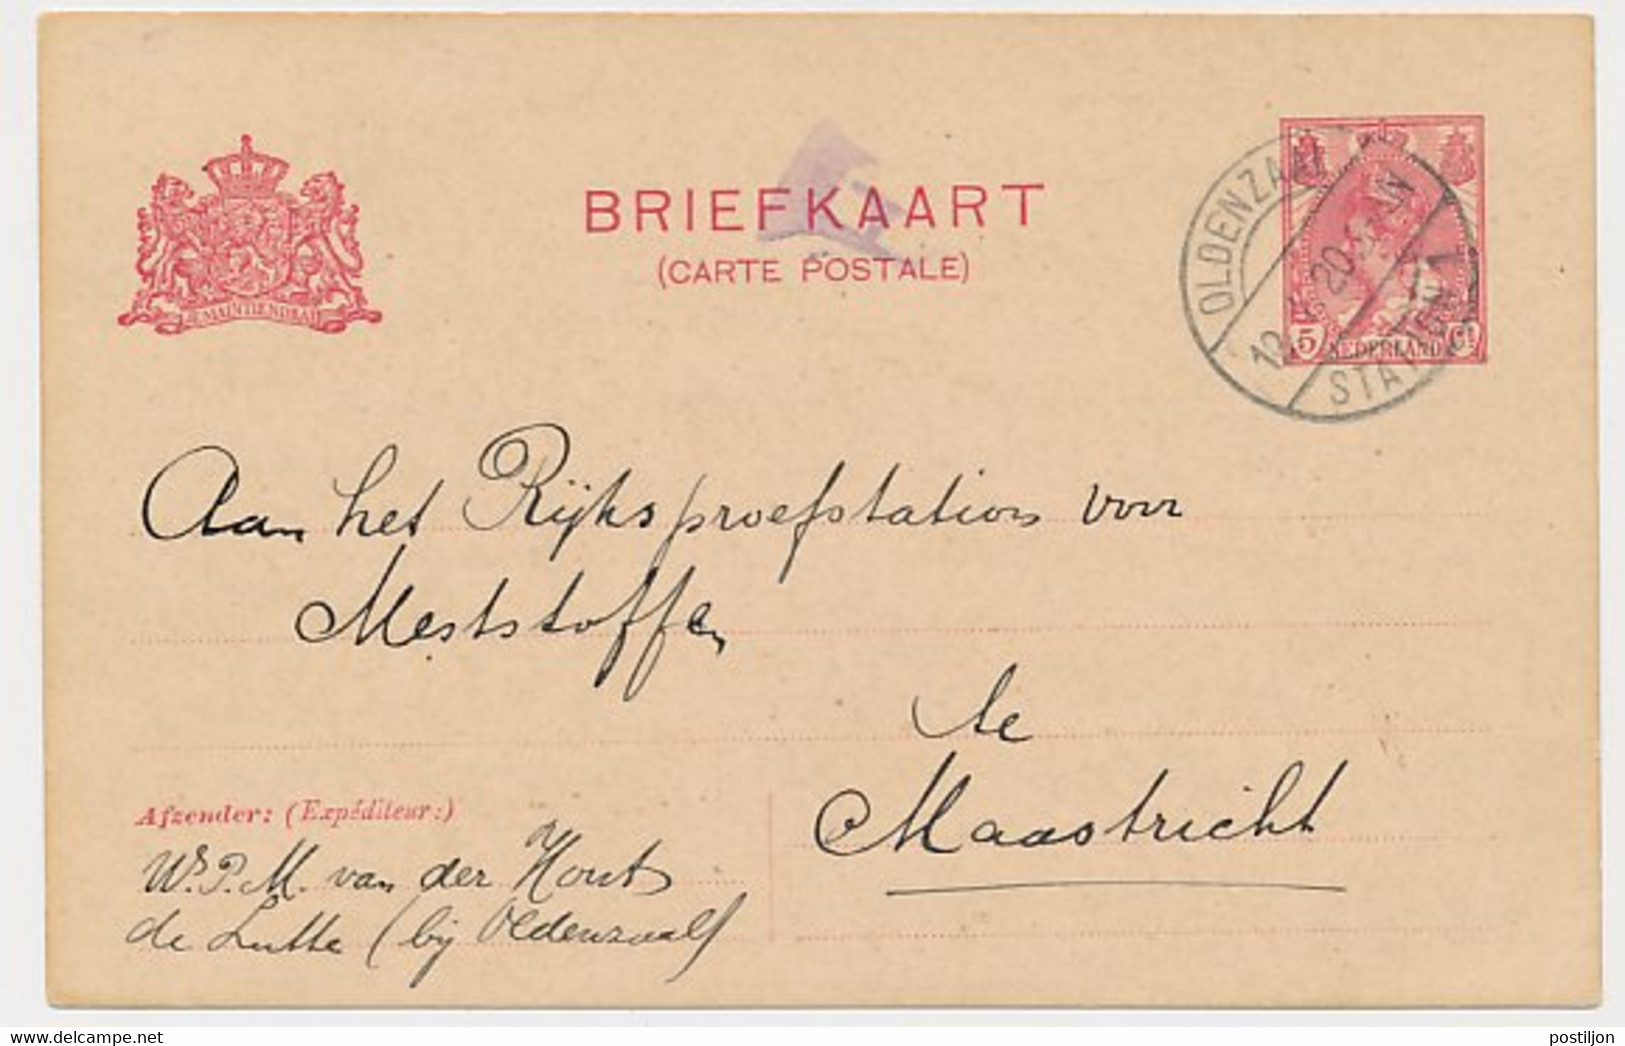 BRIEFKAART
(CARTE POSTALE)
JE MAINTIENDRAI
OLDENZAAL
STATION
5 NEDERLAND Ct
Aan het Rijksproefstation voor
Meststoffen
te
Maastricht
Afzender: (Expéditeur:)
Wr. P. M. van der Hout
de Lutte (bij Oldenzaal)
delcampe.net
postiljon